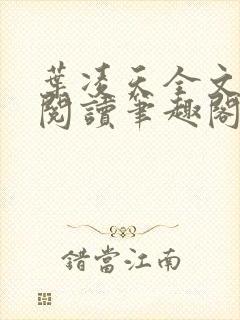 葉凌天全文
閱讀筆趣閣
錯當江南